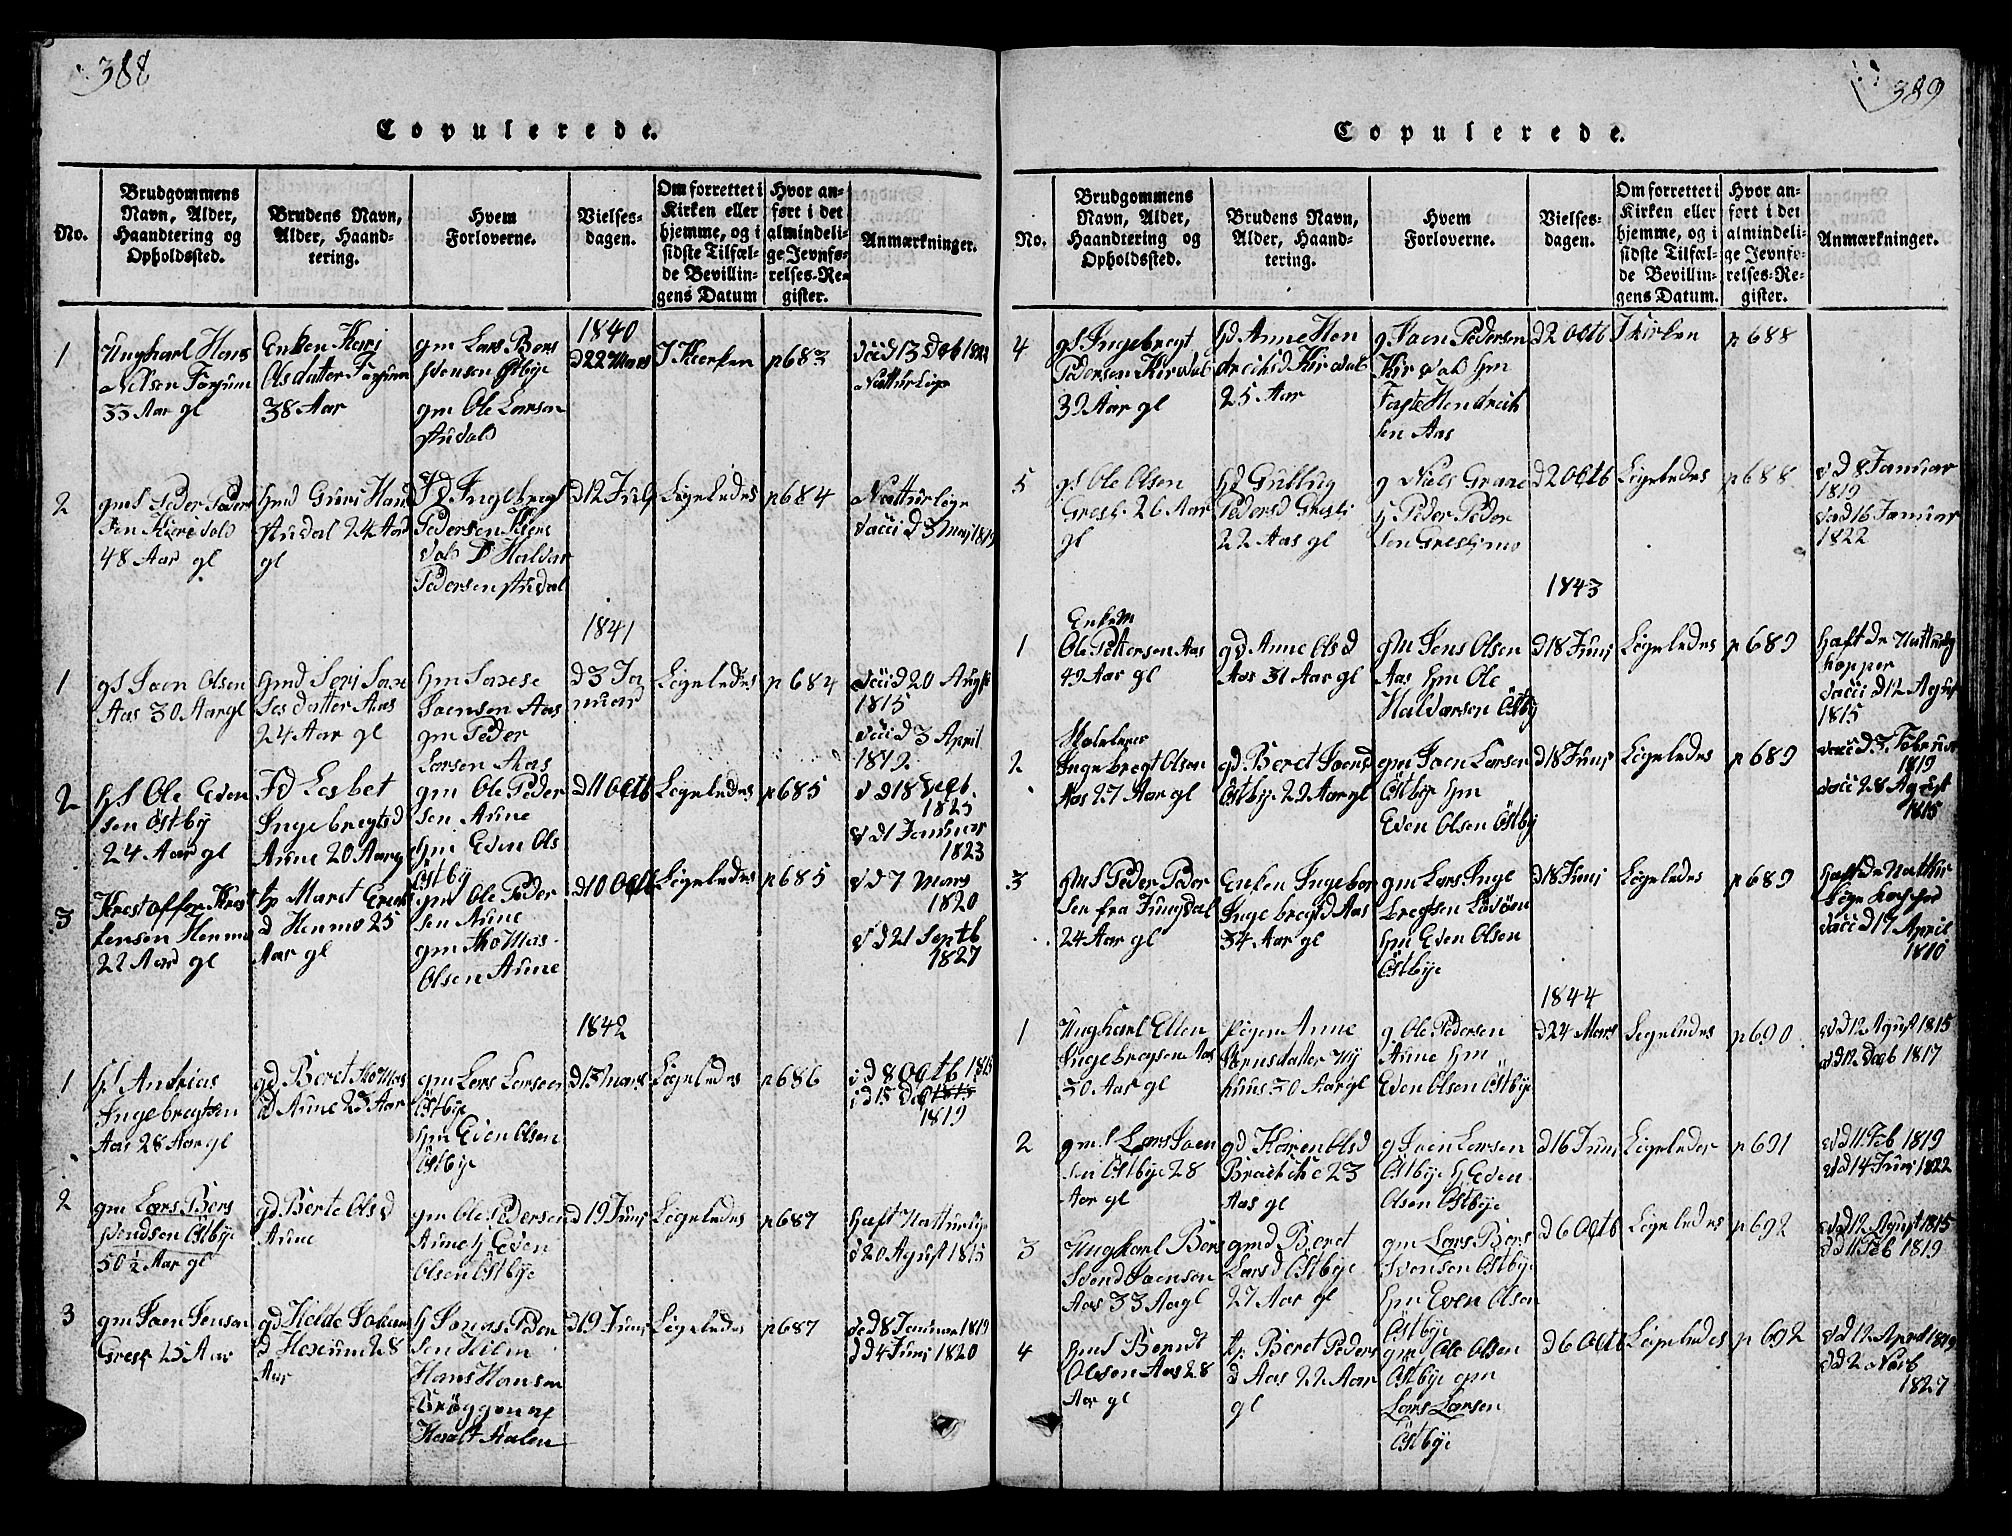 388
Copulerede.
No.
Brudgommens
Navn, Alder,
Haandtering og
Opholdssted.
Brudens Navn,
Alder, Haand-
tering.
Hvem
Forloverne.
Vielses-
dagen.
Om forrettet i
Kirken eller
hjemme, og i
sidste Tilfæl-
de Bevillin-
gens Datum
Hvor an-
ført i det
almindeli-
ge Jevnfø-
relses-Re-
gister.
Anmærkninger.
1840
1
Ungkarl Hans
Nilsen
33 Aar gl
Enken Kari
Olsdatter
38 Aar
gm Lars Bers
Svensen Østbye
gm Ole Larsen
d22 Mars
I Kierken
p683
Naturlige
2
gmS Peder Peder
sen
48 Aar gl
hmd Guri
24 Aar
gl
Ingebregt
Pedersen
Halvar
Pedersen
d12 Juli
Ligeledes
p684
Naturlige
vacci d3 Maj 1819
1841
1
gS Joen Olsen
Aas 30 Aar gl
Gmd
Sesdatter Aas
24 Aar gl
hm
Joensen Aas
gm Peder
Larsen Aas
d3 Ja
nuar
Ligeledes
p684
d20 Augst
1815
d3 April
1819
2
hS Ole Even
sen Östby
24 Aar gl
Lesbet
Ingebregtsd
Aune 20 Aar g
gm Ole Peder
sen Aune
hm Even Ols
Östby
d11 Octb
Ligeledes
p685
v d18 Sept.
1825
v d1 Januar
1823
3
Krestoffer Kres
tensen Hemmo
22 Aar gl
Maret Erichs
d Hemmo 25
Aar gl
gm Ole Peder
sen Aune
gm Thomas
Olsen Aune
d10 Octb
Ligeledes
p685
v d7 Mars
1820
v d21 Septb
1827
1842
1
hS Andrias
Ingebregtsen
Aas 28 Aar gl
gd Beret Thomas
d Aune 23 Aar
gm Lars Larsen
Östbye
hm Even Olsen
Östbye
d13 Mars
Ligeledes
p686
v d8 Octb 1815
d15
1819
2
gm Lars Bers
Svendsen Östbye
50 ½ Aar gl
gd Berte Ols d
Aune
gm Ole Pedersen
Aune h Even
Olsen Östbye
d19 Juni
Ligeledes
p687
haft Natturlige
d20 Agust 1815
3
gm Joen Jensen
Gresli 25 Aar
gd Helde
d 28
Aar
h Jonas Peder
sen
Hans Hansen
Brøggen af
d19 Juni
Ligeledes
p687
d8 Januar 1819
d4 Juni 1820
389
Copulerede.
No.
Brudgommens
Navn, Alder,
Haandtering og
Opholdssted.
Brudens Navn,
Alder, Haand-
tering.
Hvem
Forloverne.
Vielses-
dagen.
Om forrettet i
Kirken eller
hjemme, og i
sidste Tilfæl-
de Bevillin-
gens Datum.
Hvor an-
ført i det
almindeli-
ge Jevnfø-
relses-Re-
gister.
Anmærkninger.
4
gS Ingebregt
Pedersen Kirvol
39 Aar gl
hd Anne Hen
drichsd Kirvol
25 Aar
g Joen Pedersen
Kirvold hm
Hendrich
sen Aas
d2 Octb
I kirken
p688
5
gS Ole Olsen
Gresli 26 Aar
gl
hd Gullug
Pedersd Gresli
22 Aar gl
g Niels Grane
h Peder Peder
sen Greslimo
d2 Octb
Ligeledes
p688
v d8 Januar
1819
d16 Januar
1822
1843
1
Enkem
Ole Pettersen Aas
49 Aar gl
gd Anne Olsd
Aas 31 Aar gl
gm Jens Olsen
Aas hm Ole
Halvarsen Östby
d18 Juni
Ligeledes
p689
haft de Natturlig
kopper
vacci d12 Agust
1815
2
Ingebregt Olsen
Aas 27 Aar gl
gd Beret Joens
Östbye 29 Aar gl
gm Joen Larsen
Östbye hm
Even Olsen Östby
d18 Juni
Ligeledes
p689
vacci d3 Febru
1819
vacci 28 Agust
1815
3
gmS Peder Peder
sen fra Jungdal
24 Aar gl
Enken Ingebor
Ingebregtsd Aas
34 Aar gl
gm Lars Inge
bregtsen
hm Even Olsen
Östbye
d18 Juni
Ligeledes
p689
haft de Nattur
lige kopper
vacci d17 April
1810
1844
1
Ungkarl Ellen
Ingebregtsen Aas
30 Aar gl
Pigen Anne
Jensdatter Ny
huus 30 Aar gl
g Ole Pedersen
Aune hm
Even Olsen Östbye
d24 Mars
Legeledes
p690
v d12 Agust 1815
v d12 Deb 1817
2
gm S Lars Joen
sen Östbye 28
Aar gl
gd Karen Olsd
23
Aar gl
g Joen Larsen
Östbye h Even
Olsen Östbye
d16 Juni
Ligeledes
p691
v d11 Feb 1819
v d14 Juni 1822
3
Ungkarl Bers
Svend Joensen
Aas 33 Aar gl
gmd Beret
Larsd Östbye
27 Aar gl
gm Lars Bers
Svensen Östbye
hm Even Olsen
Östbye
d6 Octb
Ligeledes
p692
v d12 Agust 1815
d11 Feb 1819
4
hmS Berndt
Olsen Aas 28
Aar gl
Beret Peders
d Aas 22 Aar
gl
gm Ole Olsen
Östbye gm
Lars Larsen
Östbye
d6 Octb
Ligeledes
p692
v d12 April 1819
v d2 Novb
1827